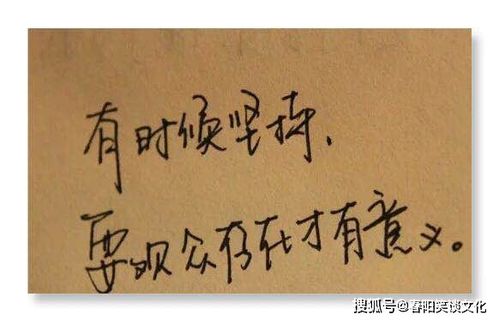 有时候坚持,
要观众存在才有意义。
搜狐号@春阳笑谈文化